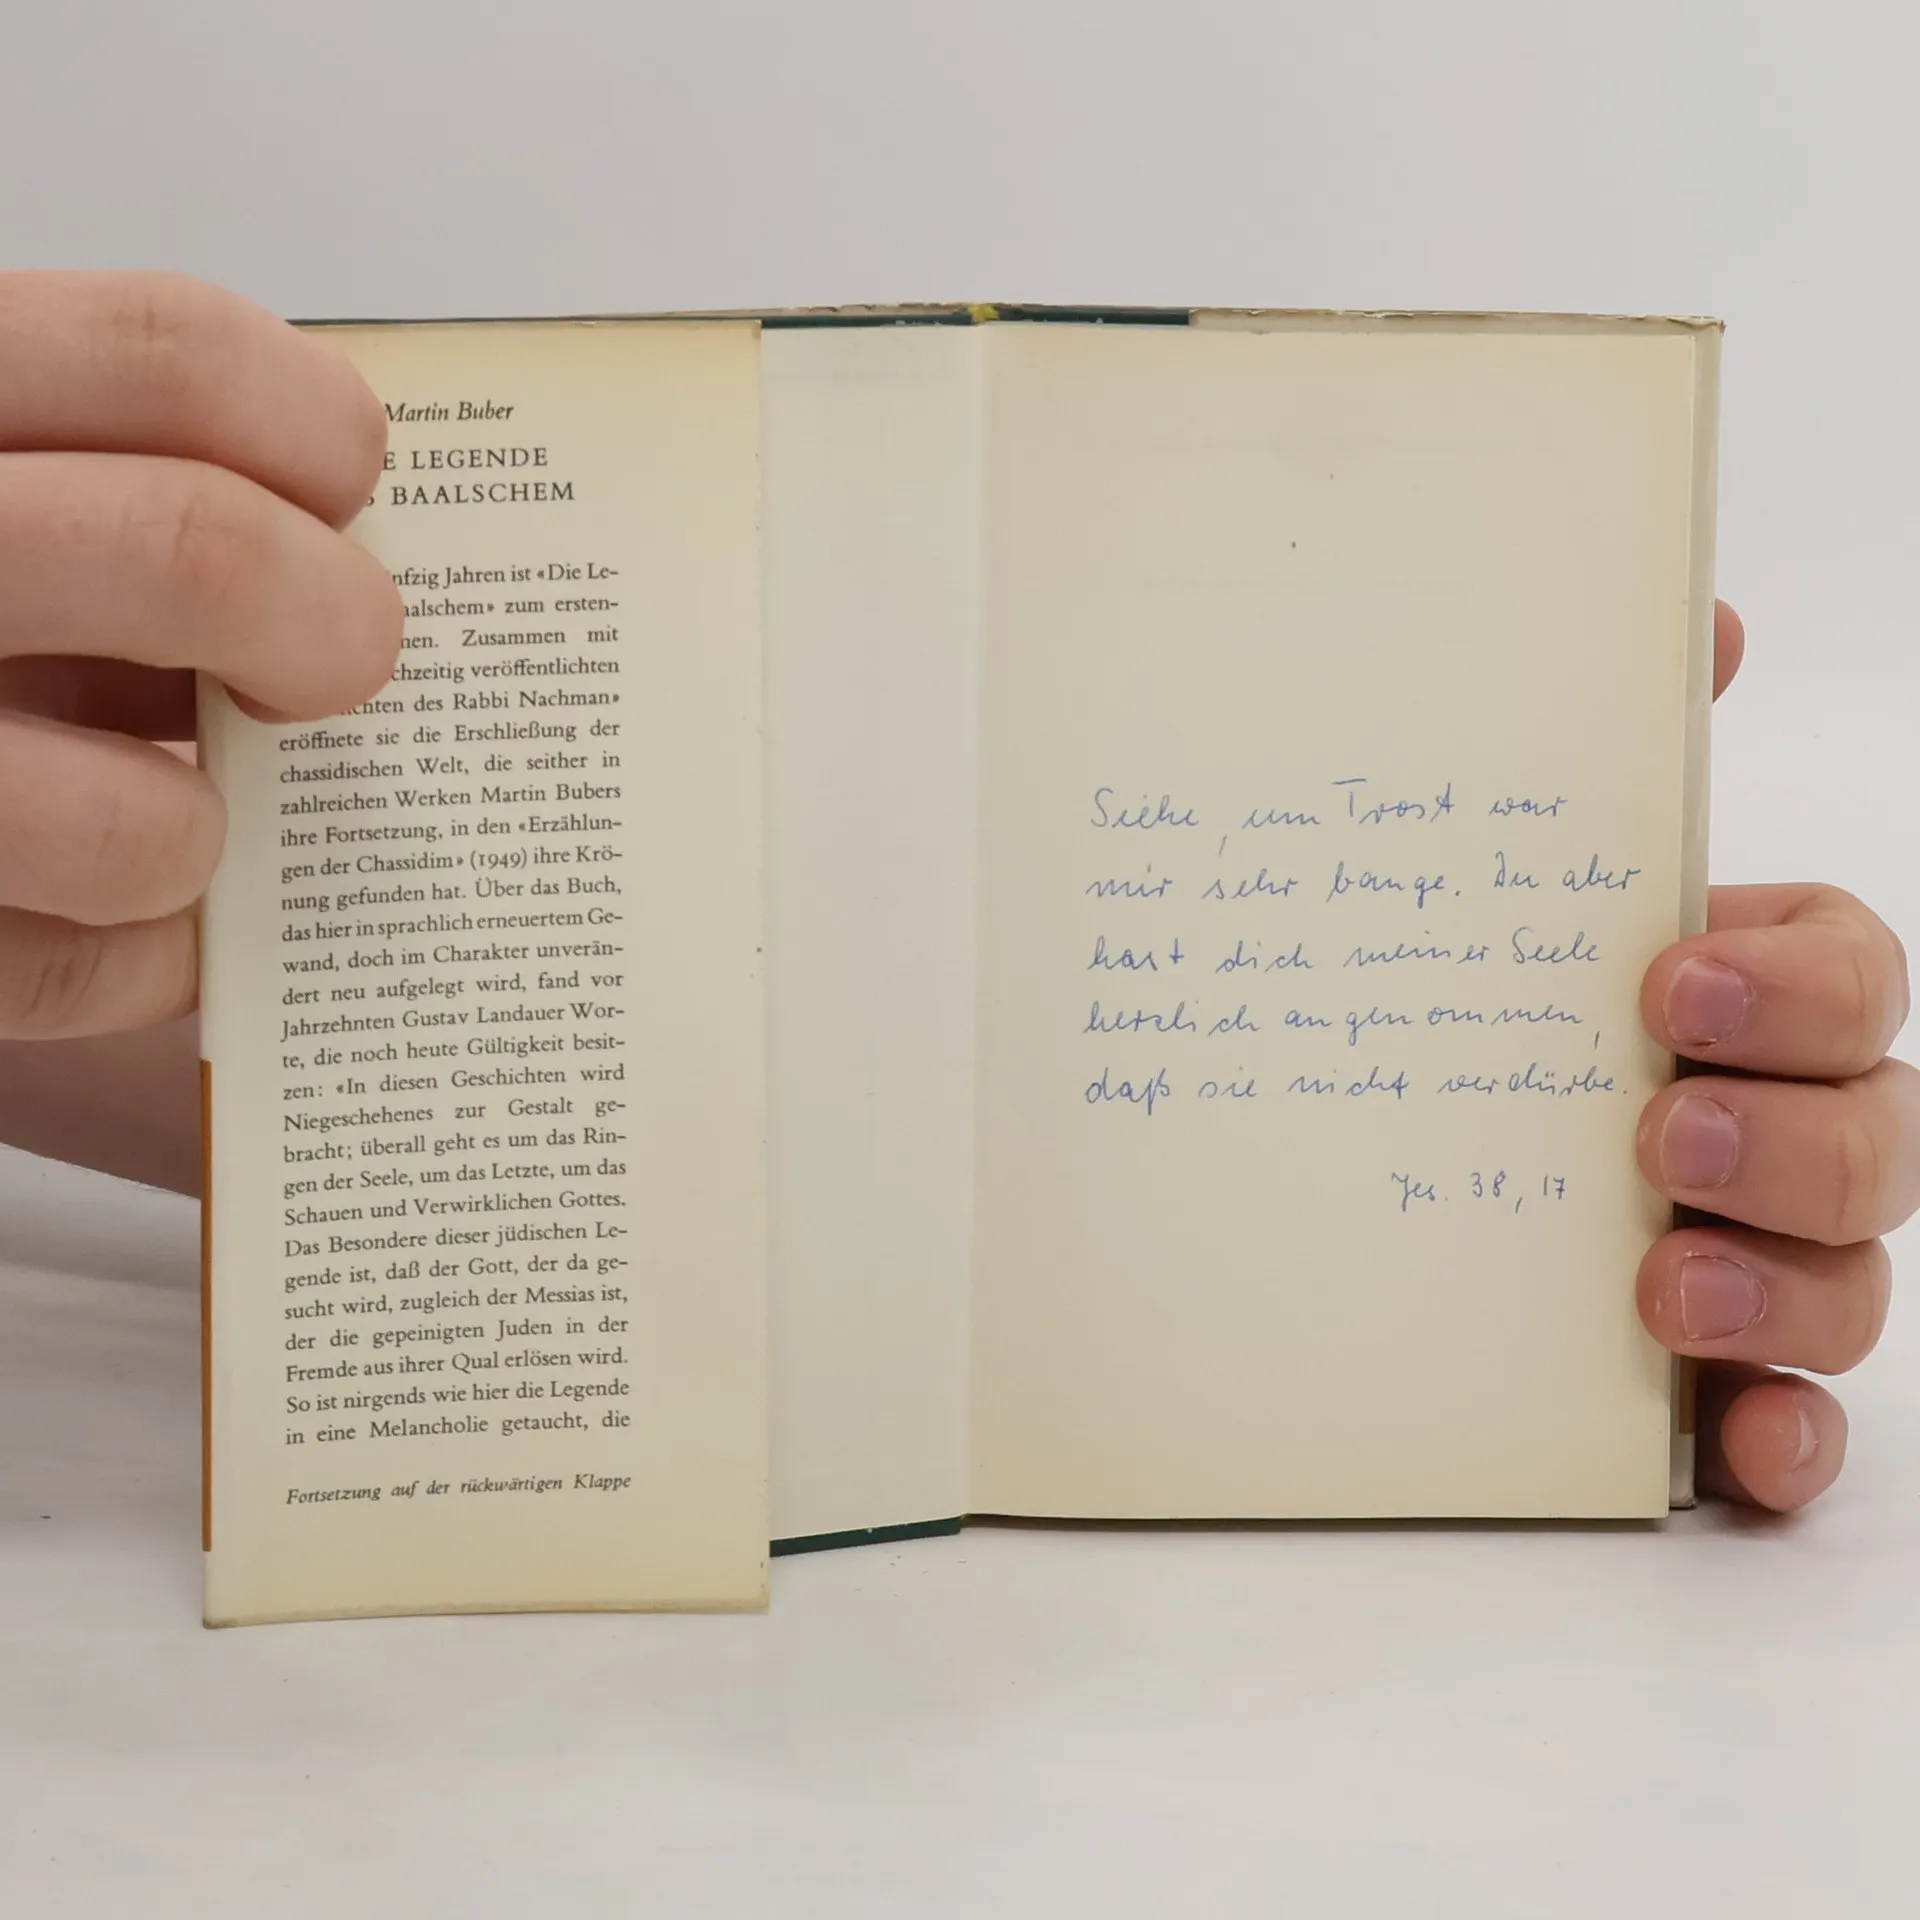 Martin Buber
E LEGENDE
S BAALSCHEM
nfzig Jahren ist «Die Le-
alschem» zum ersten-
nen. Zusammen mit
chzeitig veröffentlichten
chten des Rabbi Nachman»
eröffnete sie die Erschließung der
chassidischen Welt, die seither in
zahlreichen Werken Martin Bubers
ihre Fortsetzung, in den «Erzählun-
gen der Chassidim» (1949) ihre Krö-
nung gefunden hat. Über das Buch,
das hier in sprachlich erneuertem Ge-
wand, doch im Charakter unverän-
dert neu aufgelegt wird, fand vor
Jahrzehnten Gustav Landauer Wor-
te, die noch heute Gültigkeit besit-
zen: «In diesen Geschichten wird
Niegeschehenes zur Gestalt ge-
bracht; überall geht es um das Rin-
gen der Seele, um das Letzte, um das
Schauen und Verwirklichen Gottes.
Das Besondere dieser jüdischen Le-
gende ist, daß der Gott, der da ge-
sucht wird, zugleich der Messias ist,
der die gepeinigten Juden in der
Fremde aus ihrer Qual erlösen wird.
So ist nirgends wie hier die Legende
in eine Melancholie getaucht, die
Fortsetzung auf der rückwärtigen Klappe
Siehe, um Trost war
mir sehr bange. Du aber
hast dich meiner Seele
herzlich angenommen,
daß sie nicht verdürbe.
Jes. 38, 17